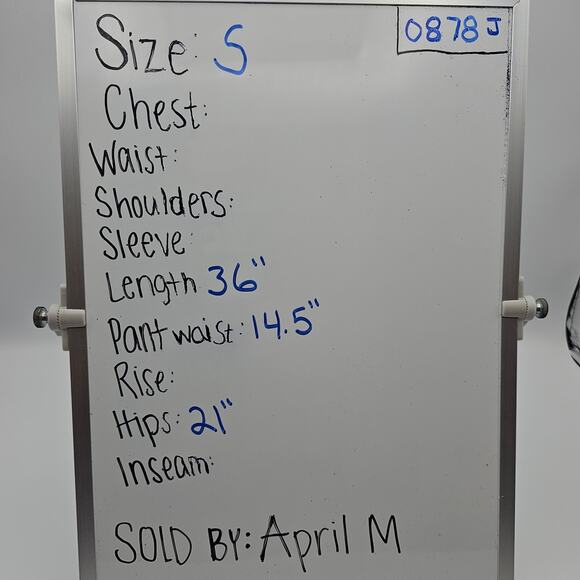 Size: S
0878 J
Chest:
Waist:
Shoulders:
Sleeve:
Length 36"
Pant waist: 14.5"
Rise:
Hips: 21"
Inseam:
SOLD BY: April M